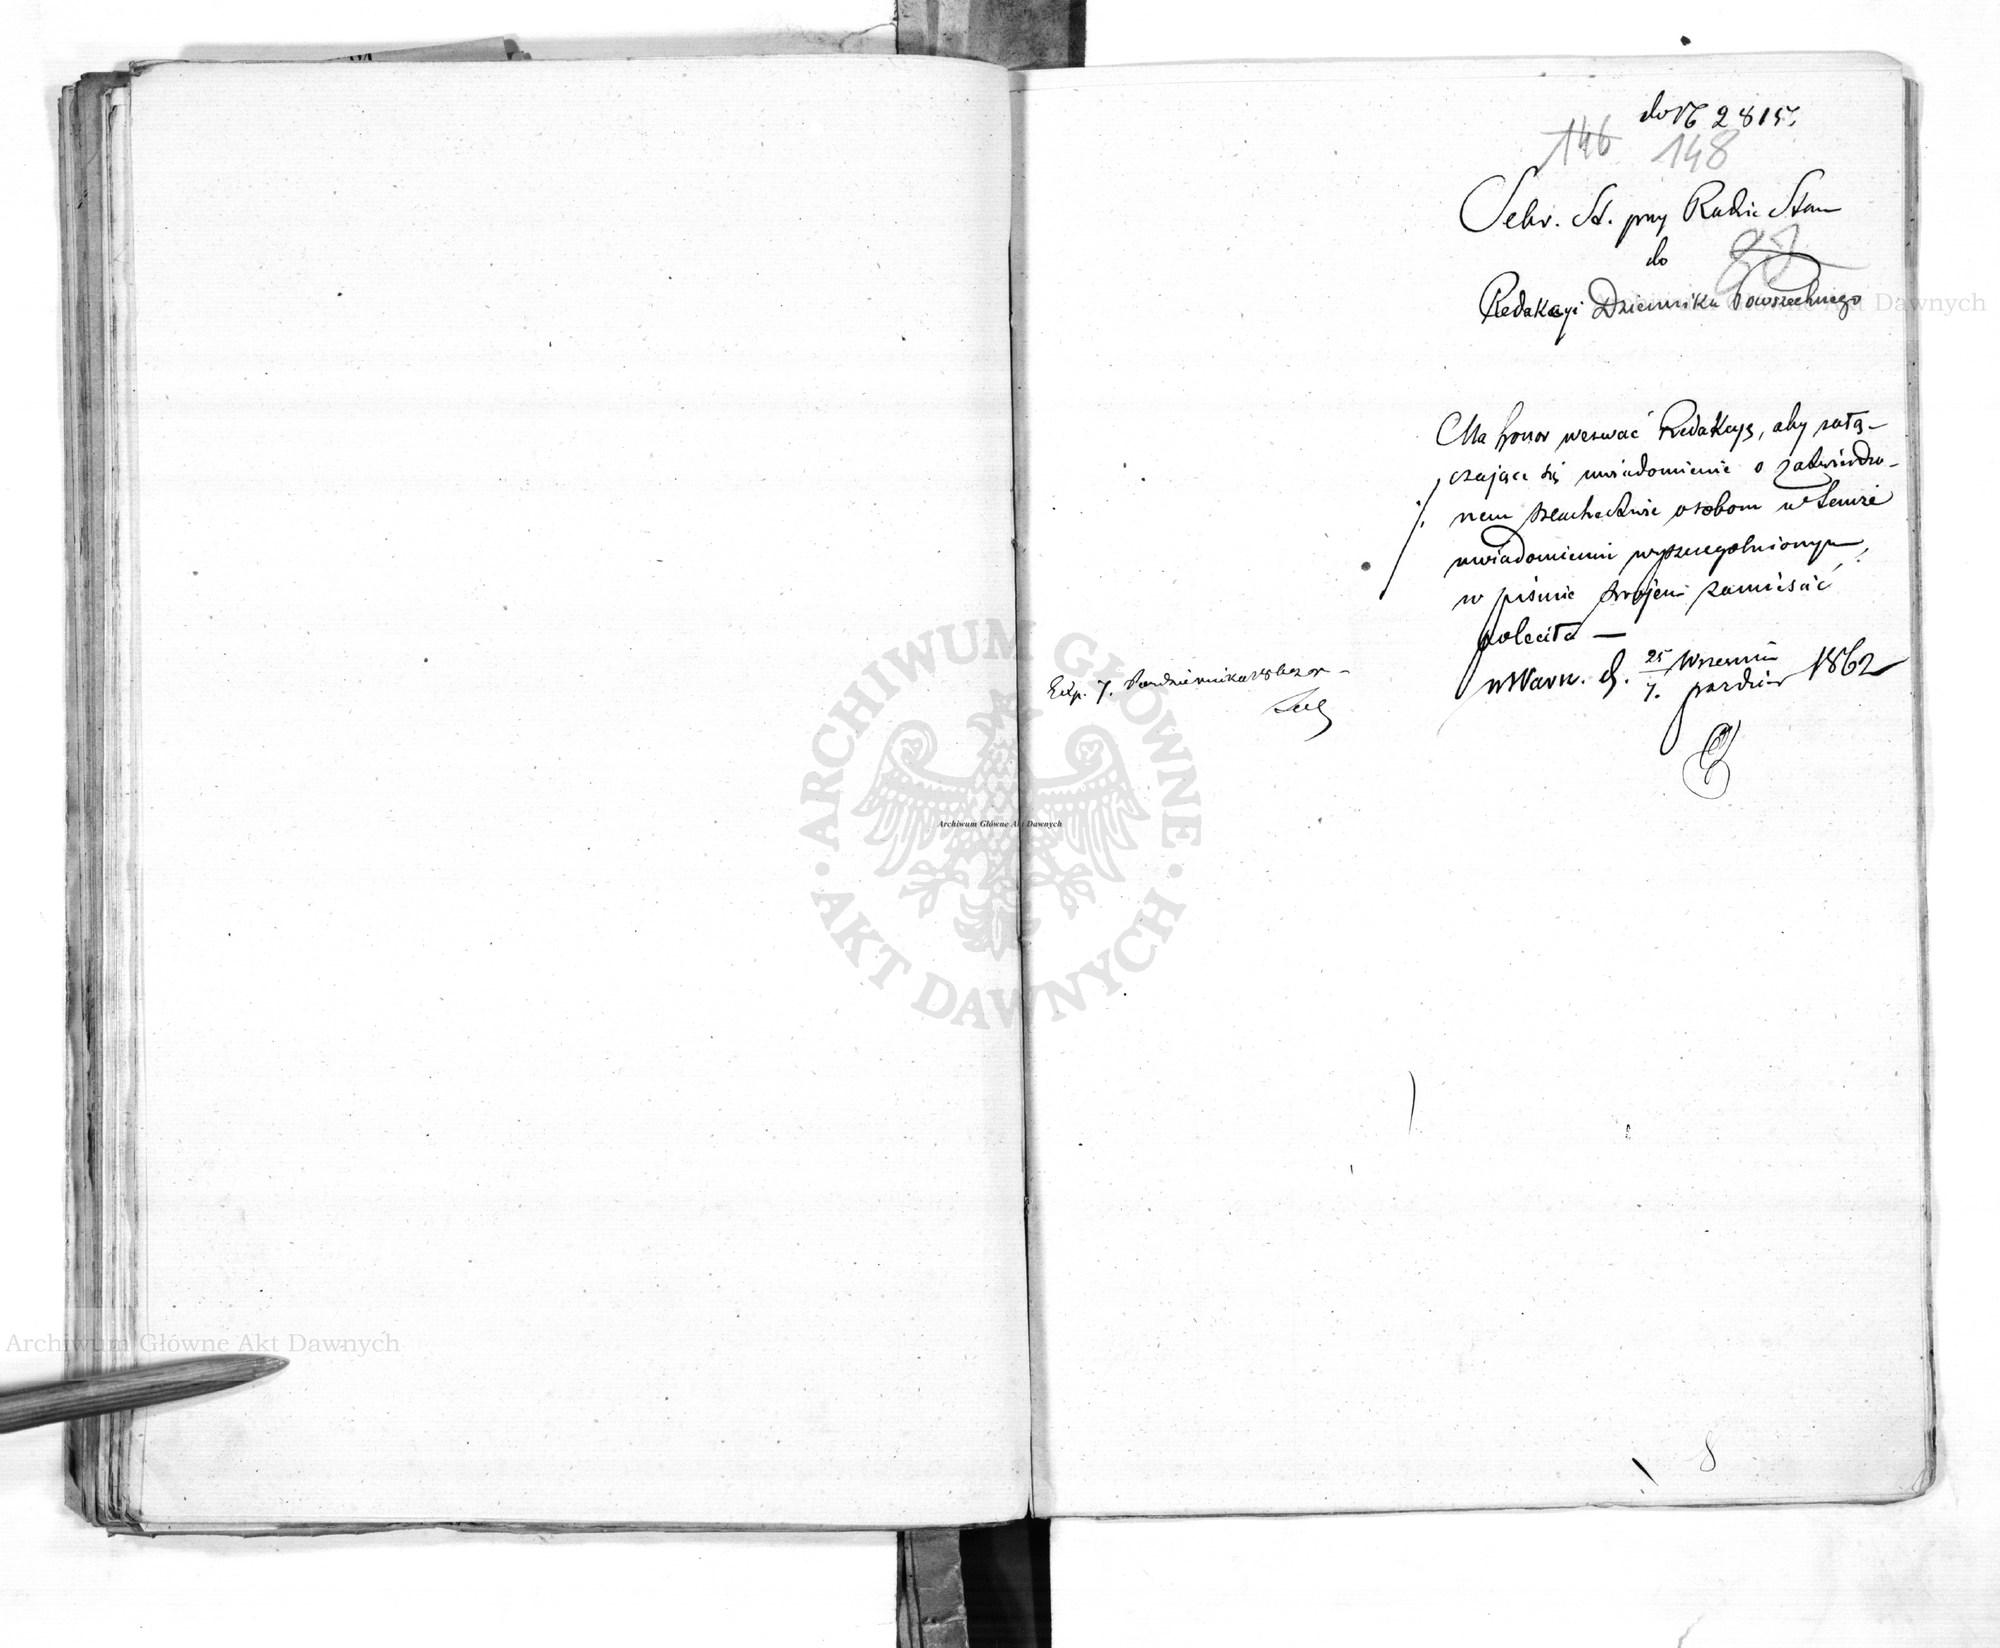 do № 2815.
146 148
Sekr. St. przy Radzie Stanu
do
Redakcyi Dziennika Powszechnego
Ma honor wezwać Redakcyą, aby załą-
czające się uwiadomienie o zatwierdzo-
nem szlachectwie osobom w temże
uwiadomieniu wyszczególnionym,
w piśmie swojem zamieścić
poleciła —
w Warn. d. 25 Września / 7. paździer 1862
Exp. 7. Października
ARCHIWUM GŁÓWNE AKT DAWNYCH
Archiwum Główne Akt Dawnych
Archiwum Główne Akt Dawnych
Archiwum Główne Akt Dawnych
8